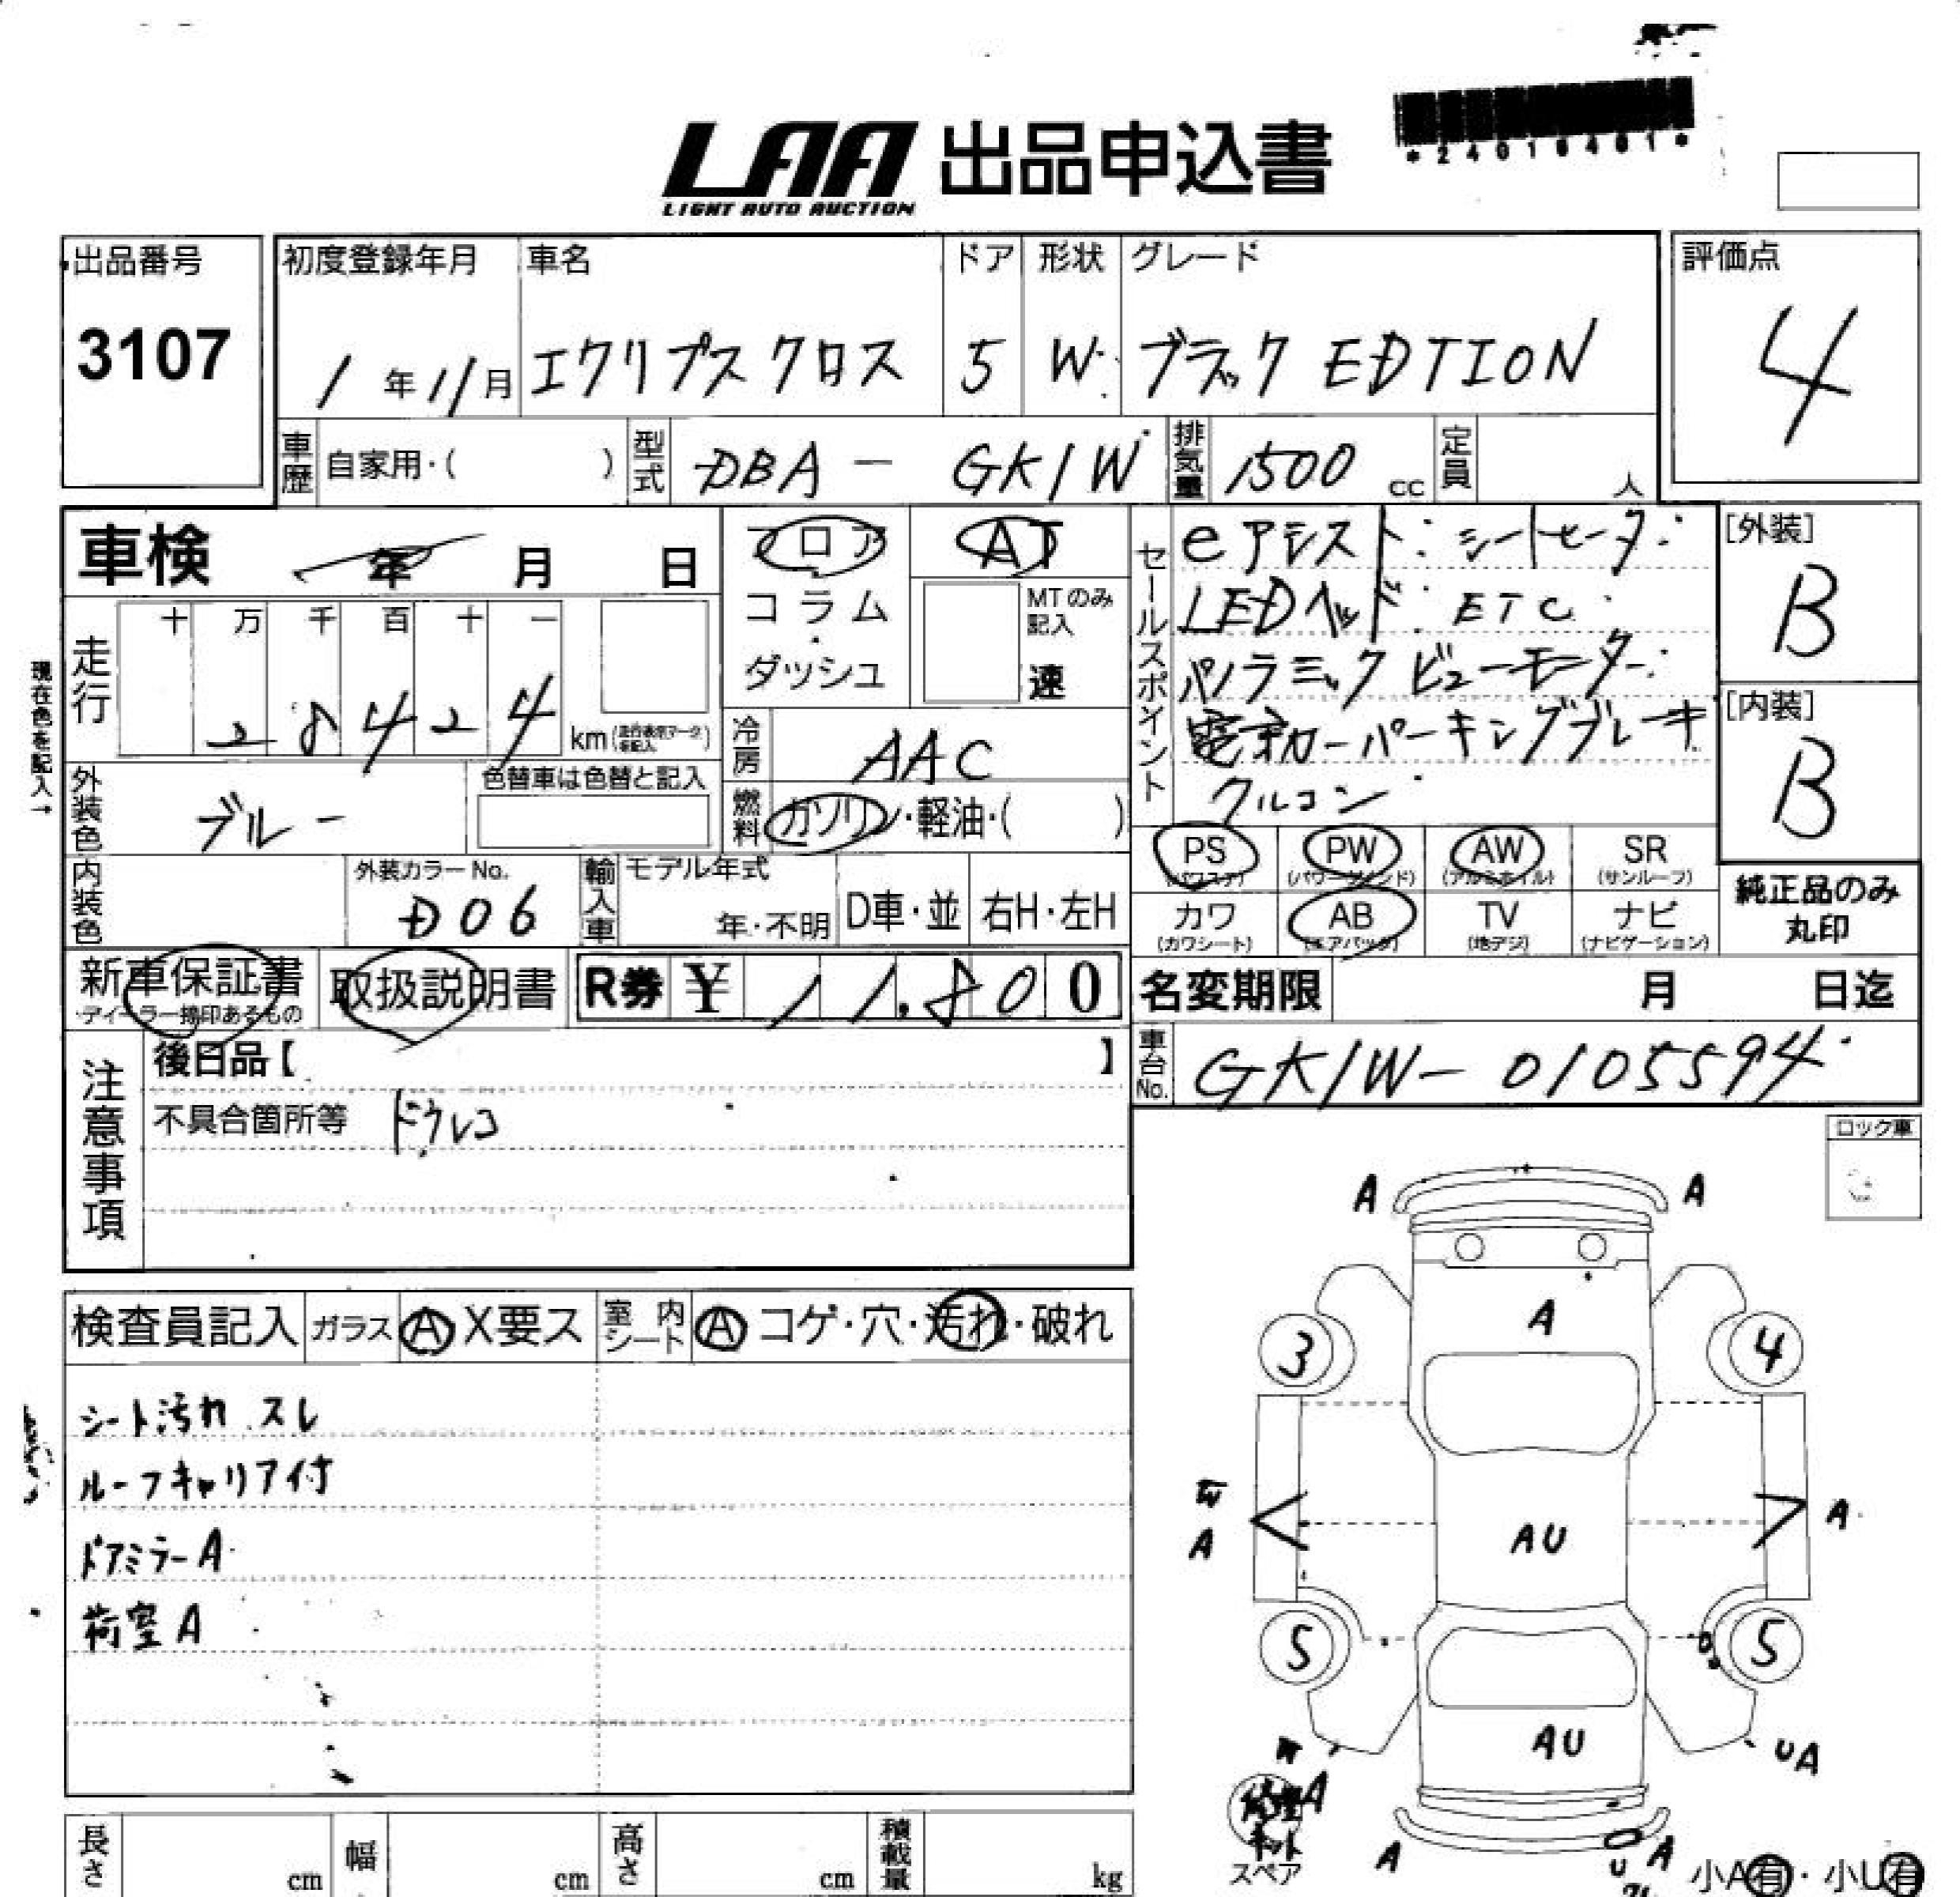 LAA 出品申込書
LIGHT AUTO AUCTION
*24010401*
出品番号
3107
初度登録年月
1年11月
車名
エクリプス クロス
ドア
5
形状
W
グレード
ブラック EDTION
評価点
4
車歴 自家用・( )
型式 DBA - GK1W
排気量 1500 cc
定員 人
車検 年 月 日
フロア
コラム
ダッシュ
AT
MTのみ記入
速
走行
十 万 千 百 十 一
2 8 4 2 4 km
現在色を記入→
冷房 AAC
燃料 ガソリン・軽油・( )
外装色 ブルー
色替車は色替と記入
内装色
外装カラーNo.
D06
輸入車
モデル年式
年・不明
D車・並
右H・左H
セールスポイント
eアシスト シートヒーター
LEDヘッド ETC
パノラミックビューモニター
電動パーキングブレーキ
クルコン
[外装]
B
[内装]
B
PS (パワステ)
PW (パワーウインド)
AW (アルミホイル)
SR (サンルーフ)
カワ (カワシート)
AB (エアバッグ)
TV (地デジ)
ナビ (ナビゲーション)
純正品のみ
丸印
新車保証書
ディーラー捺印あるもの
取扱説明書
R券 ¥ 11,800
名変期限 月 日迄
車台No. GK1W-0105594
注意事項
後日品【 】
不具合箇所等 ドラレコ
ロック車
検査員記入 ガラス A X要ス 室内シート A コゲ・穴・汚れ・破れ
シート汚れ スレ
ルーフキャリア付
ドアミラーA
荷室A
A A
A
3 4
W
A AU A
5 5
AU
W UA
A
修理
キット
スペア
A A
U
小A有・小U有
長さ cm 幅 cm 高さ cm 積載量 kg